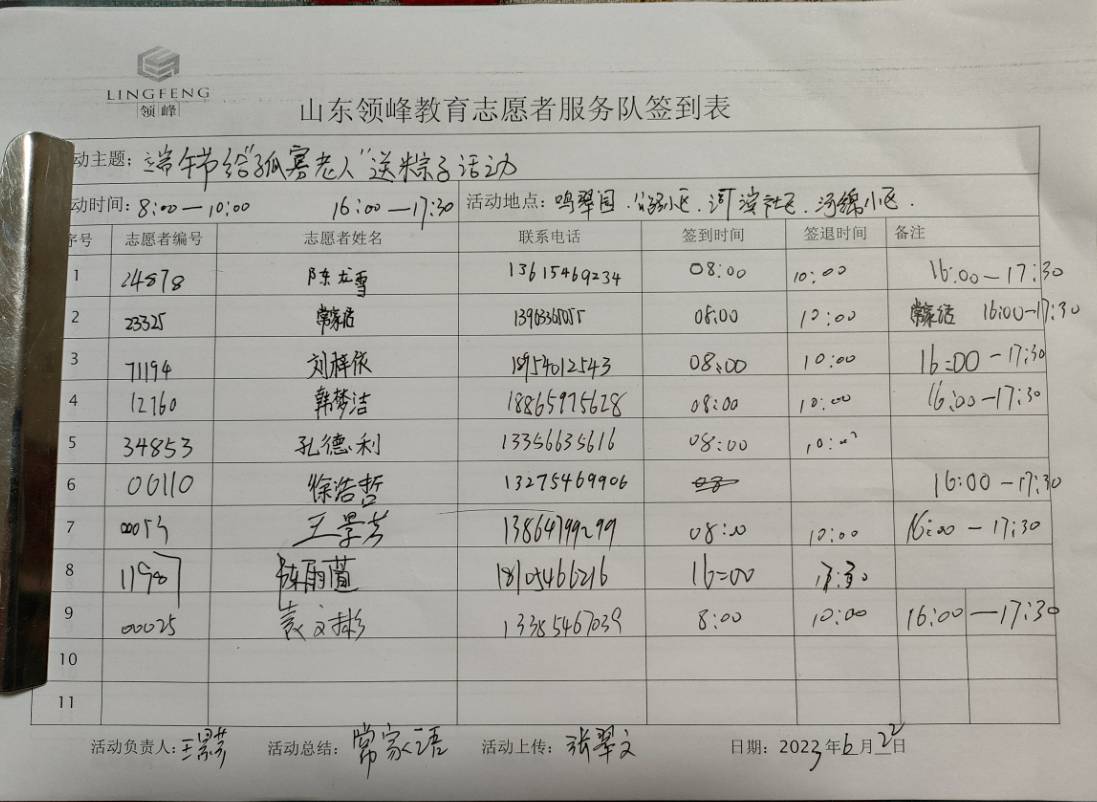 LINGFENG
领峰
山东领峰教育志愿者服务队签到表
动主题: 端午节给"孤寡老人"送粽子活动
动时间: 8:00—10:00 16:00—17:30 活动地点: 鸣翠园.公路小区.河滨社区.河锦小区.
序号 志愿者编号 志愿者姓名 联系电话 签到时间 签退时间 备注
1 24878 陈龙雪 13615469234 08:00 10:00 16:00—17:30
2 23325 常家语 08:00 10:00 常家语 16:00—17:30
3 71194 刘梓依 18954012543 08:00 10:00 16:00—17:30
4 12760 韩梦洁 18865975628 08:00 10:00 16:00—17:30
5 34853 孔德利 13356635616 08:00 10:00
6 00110 徐浩哲 13275469906 16:00—17:30
7 王景芳 13864799299 08:00 10:00 16:00—17:30
8 11987 陈雨萱 18105466216 16:00 17:30
9 00025 袁文彬 13385467039 8:00 10:00 16:00—17:30
10
11
活动负责人: 王景芳 活动总结: 常家语 活动上传: 张翠文 日期: 2023年6月22日